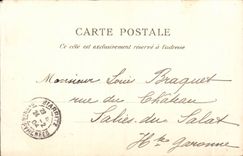 CARTE POSTALE
Ce côté est exclusivement réservé à l'adresse
Monsieur Louis Braquet
rue du Château
Salies du Salat
Hte Garonne
BIARRITZ